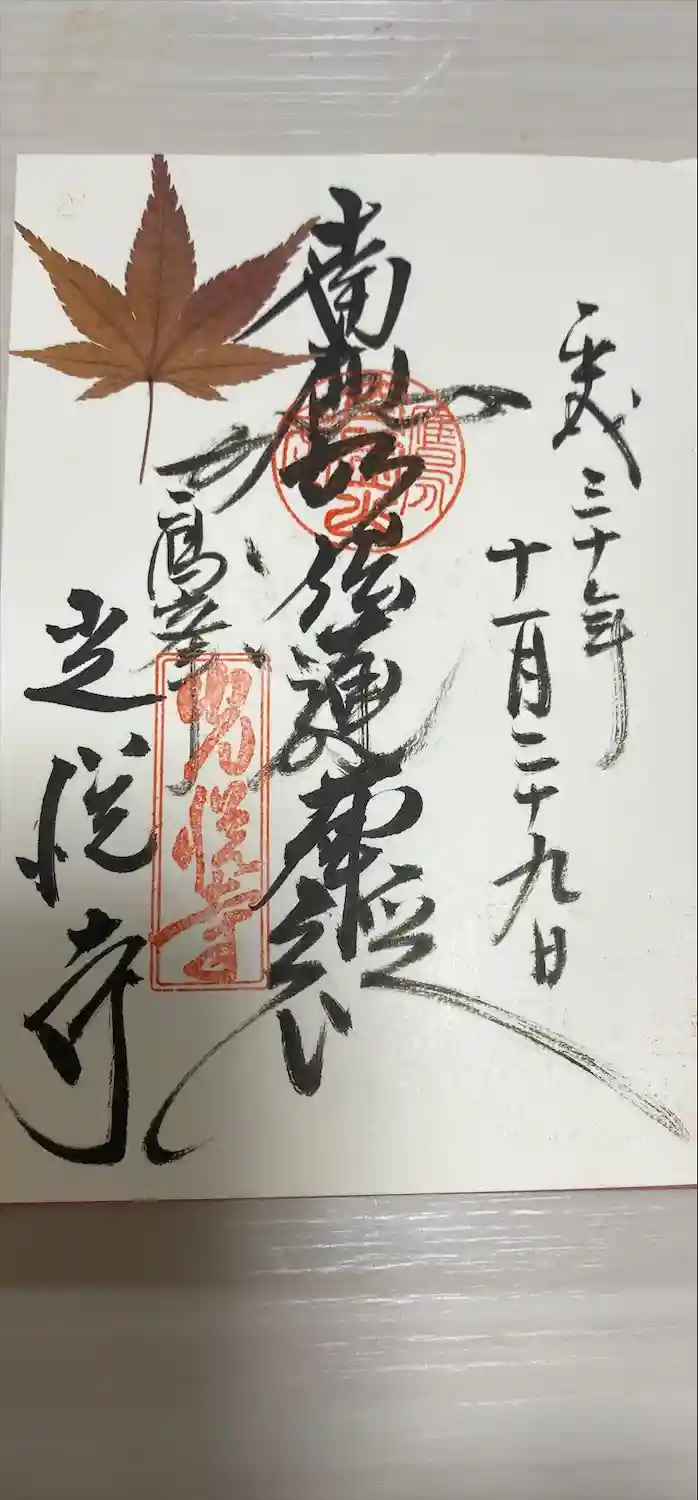 平成三十年
十一月二十九日
南無妙法蓮華経
髙峯
光悦寺
光悦寺